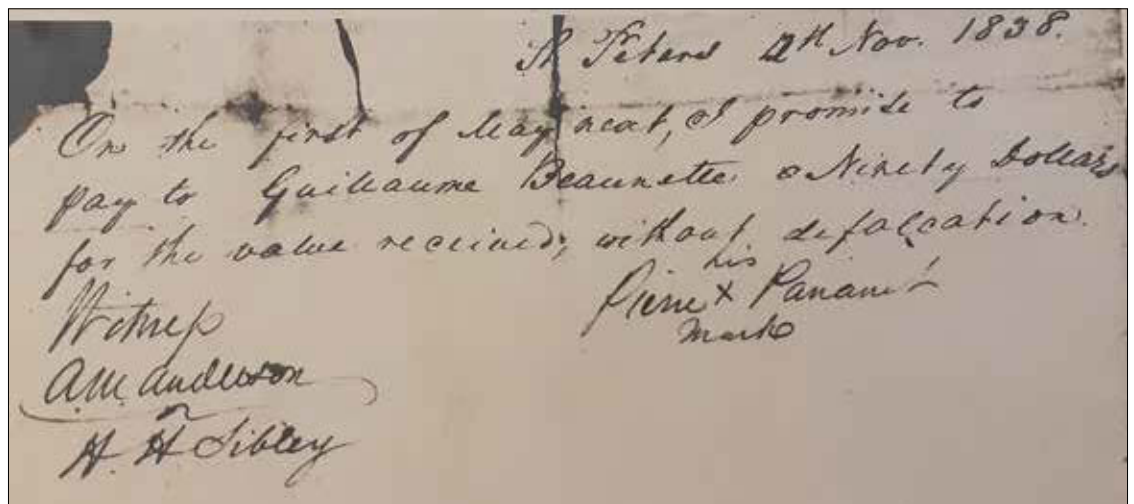 St Peters 2th Nov. 1838.
On the first of May next, I promise to
pay to Guillaume Beaumette Ninety Dollars
for the value received, without defalcation.
his
Pierre X Parrant
mark
Witness
A.M. Anderson
H. H Sibley